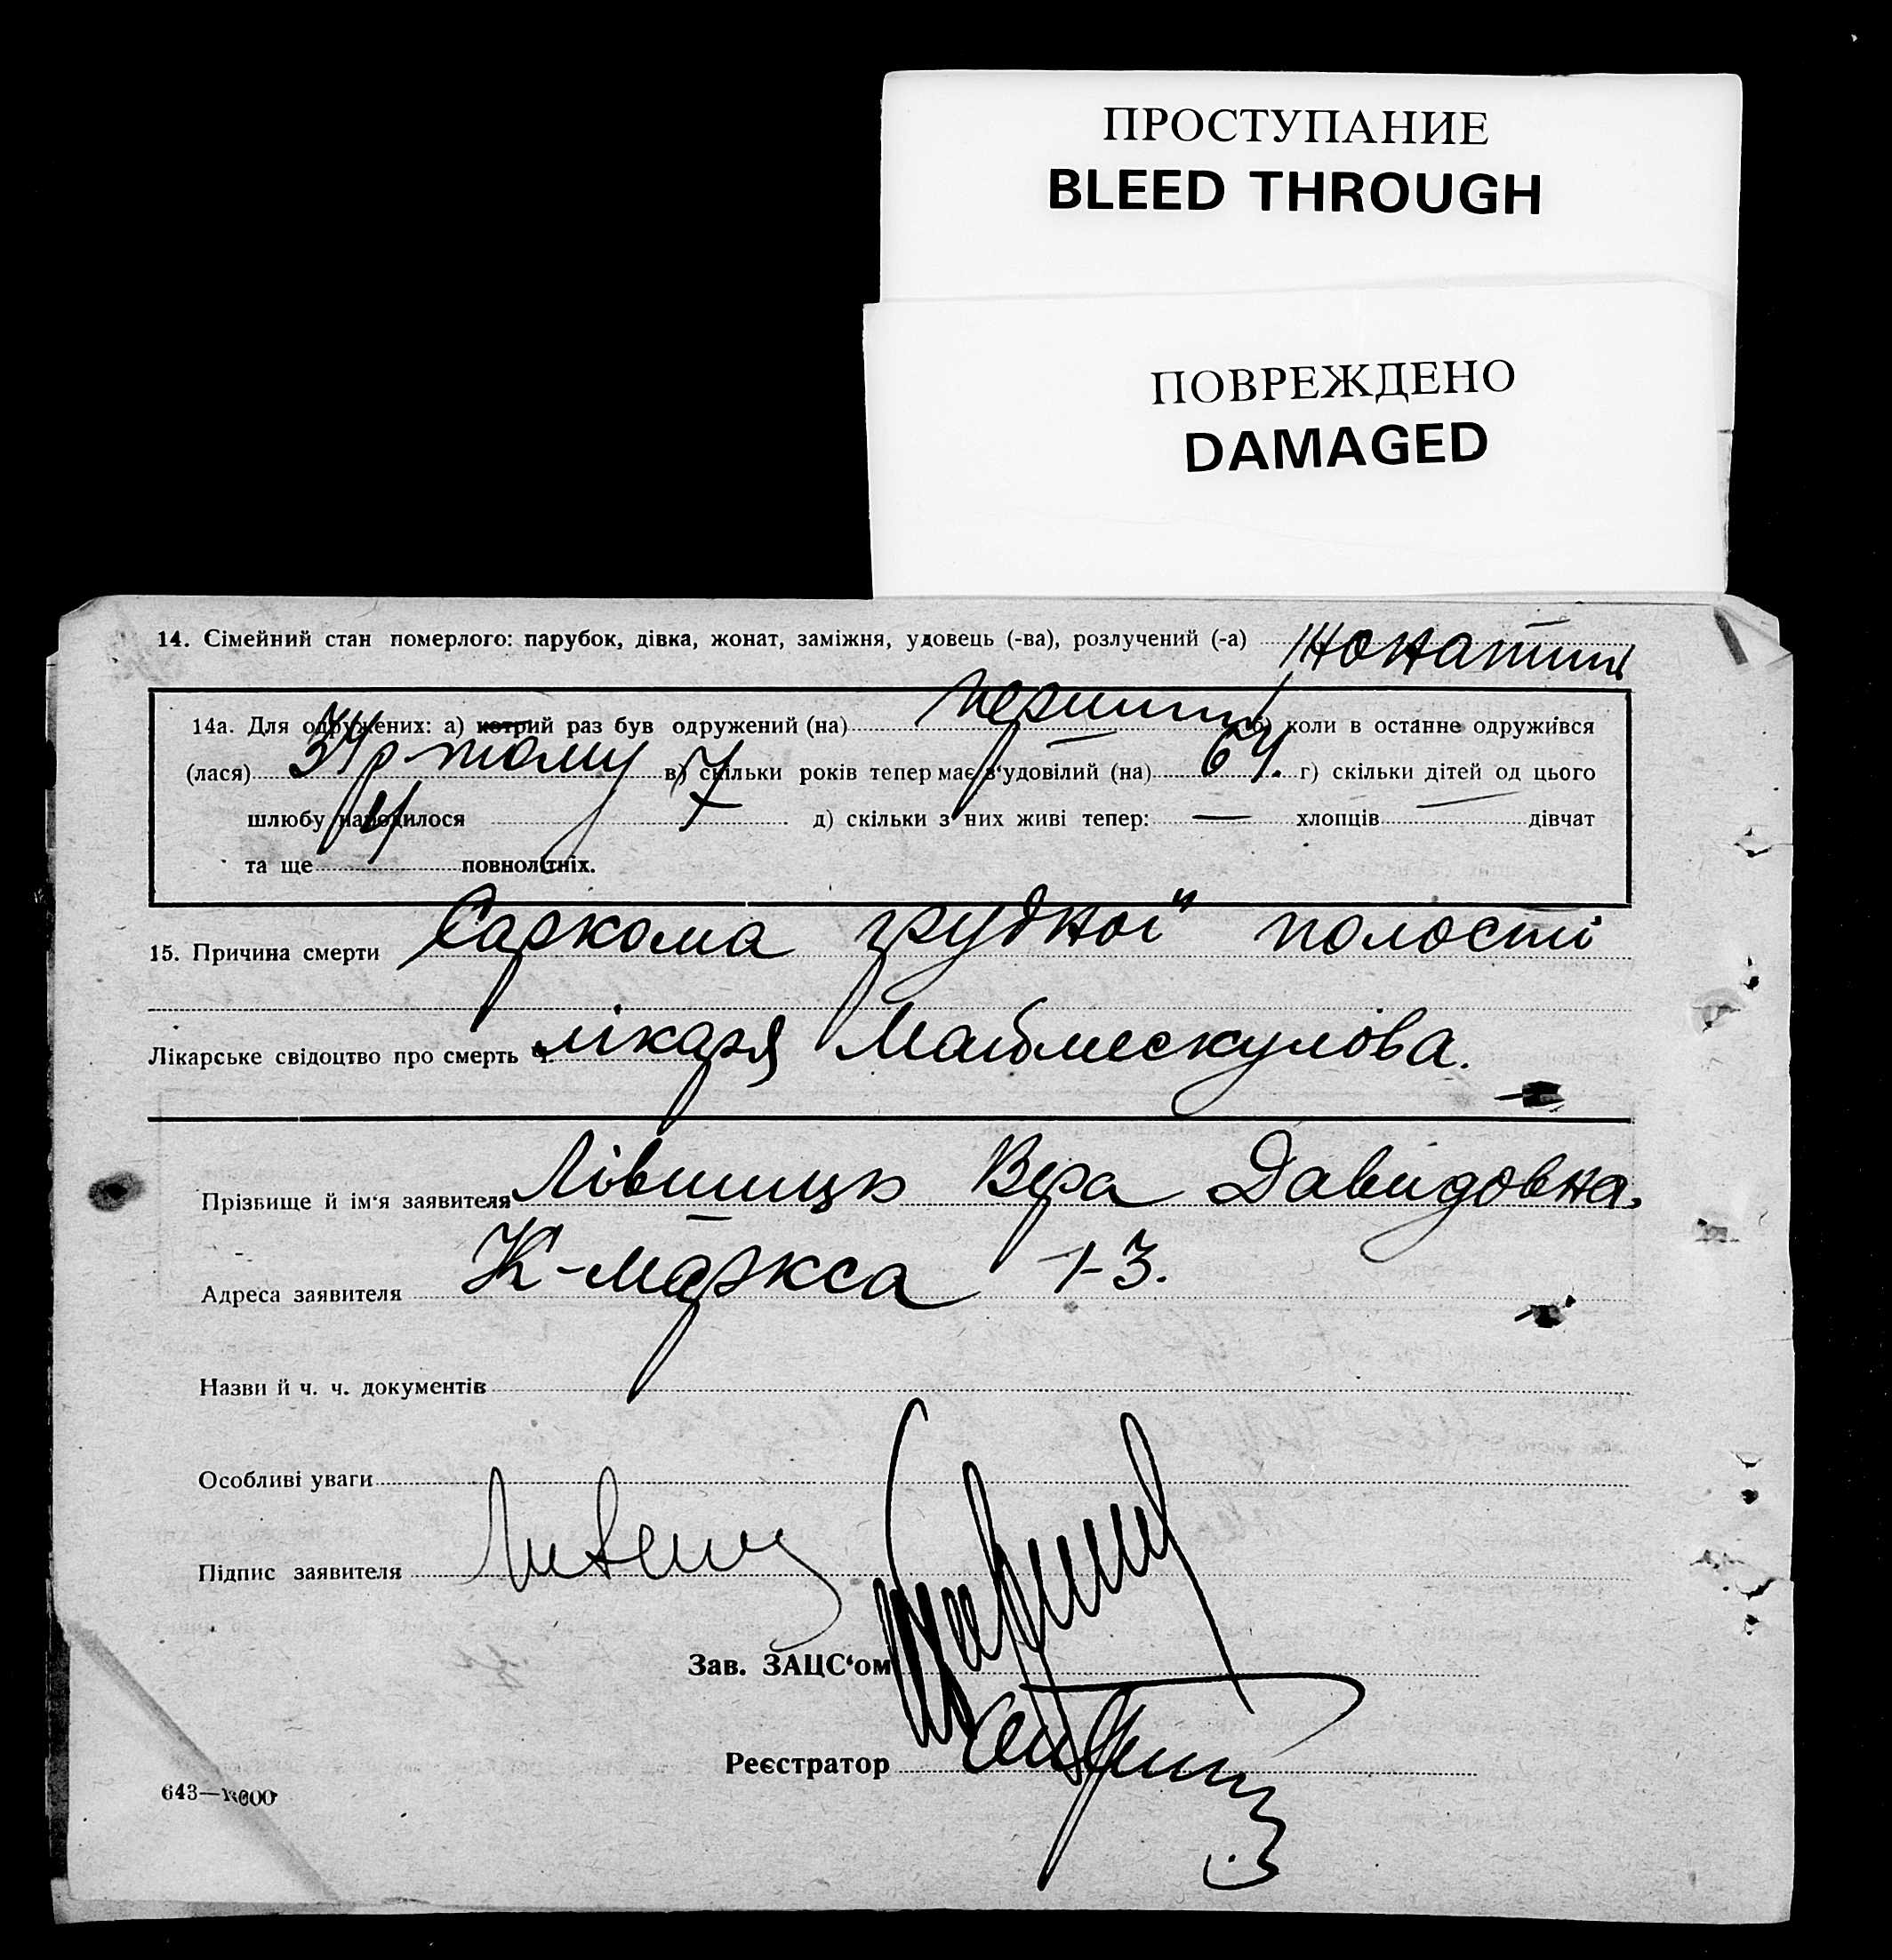 ПРОСТУПАНИЕ
BLEED THROUGH
ПОВРЕЖДЕНО
DAMAGED
14. Сімейний стан померлого: парубок, дівка, жонат, заміжня, удовець (-ва), розлучений (-а) жонатий
14а. Для одружених: а) котрий раз був одружений (на) перший б) коли в останне одружився
(лася) 34 р тому в) скільки років тепер має з'удовілий (на) 64. г) скільки дітей од цього
шлюбу народилося 7 д) скільки з них живі тепер: — хлопців — дівчат
та ще 4 повнолітніх.
15. Причина смерти Саркома грудної полості
Лікарське свідоцтво про смерть ч. лікаря Маймескулова.
Прізвище й ім'я заявителя Лівшиць Вера Давидовна.
Адреса заявителя К-маркса 1-3.
Назви й ч. ч. документів
Особливі уваги
Підпис заявителя
Зав. ЗАЦС'ом
Реєстратор
643—